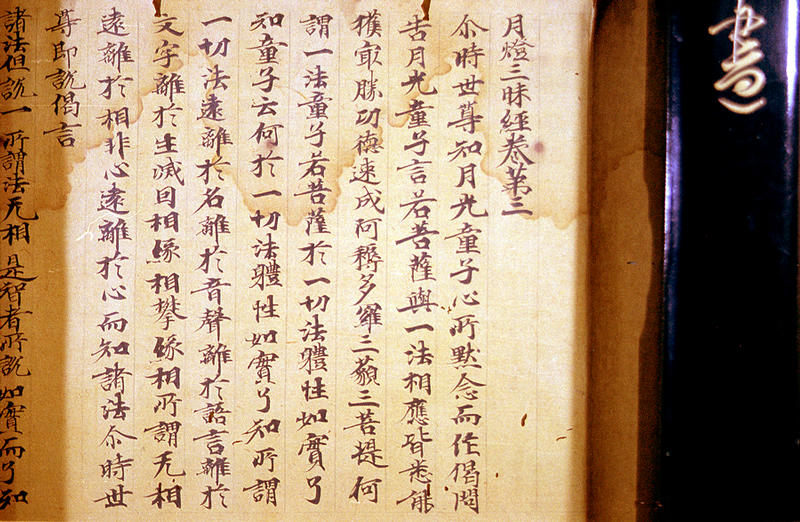 書
月燈三昧經卷第三
尒時世尊知月光童子心所默念而作偈問
告月光童子言若菩薩與一法相應皆悉能
獲冣勝功德速成阿耨多羅三藐三菩提何
謂一法童子若菩薩於一切法體性如實了
知童子云何於一切法體性如實了知所謂
一切法遠離於名離於音聲離於語言離於
文字離於生滅因相緣相攀緣相所謂无相
遠離於相非心遠離於心而知諸法尒時世
尊即說偈言
諸法但說一 所謂法无相 是智者所說 如實而了知